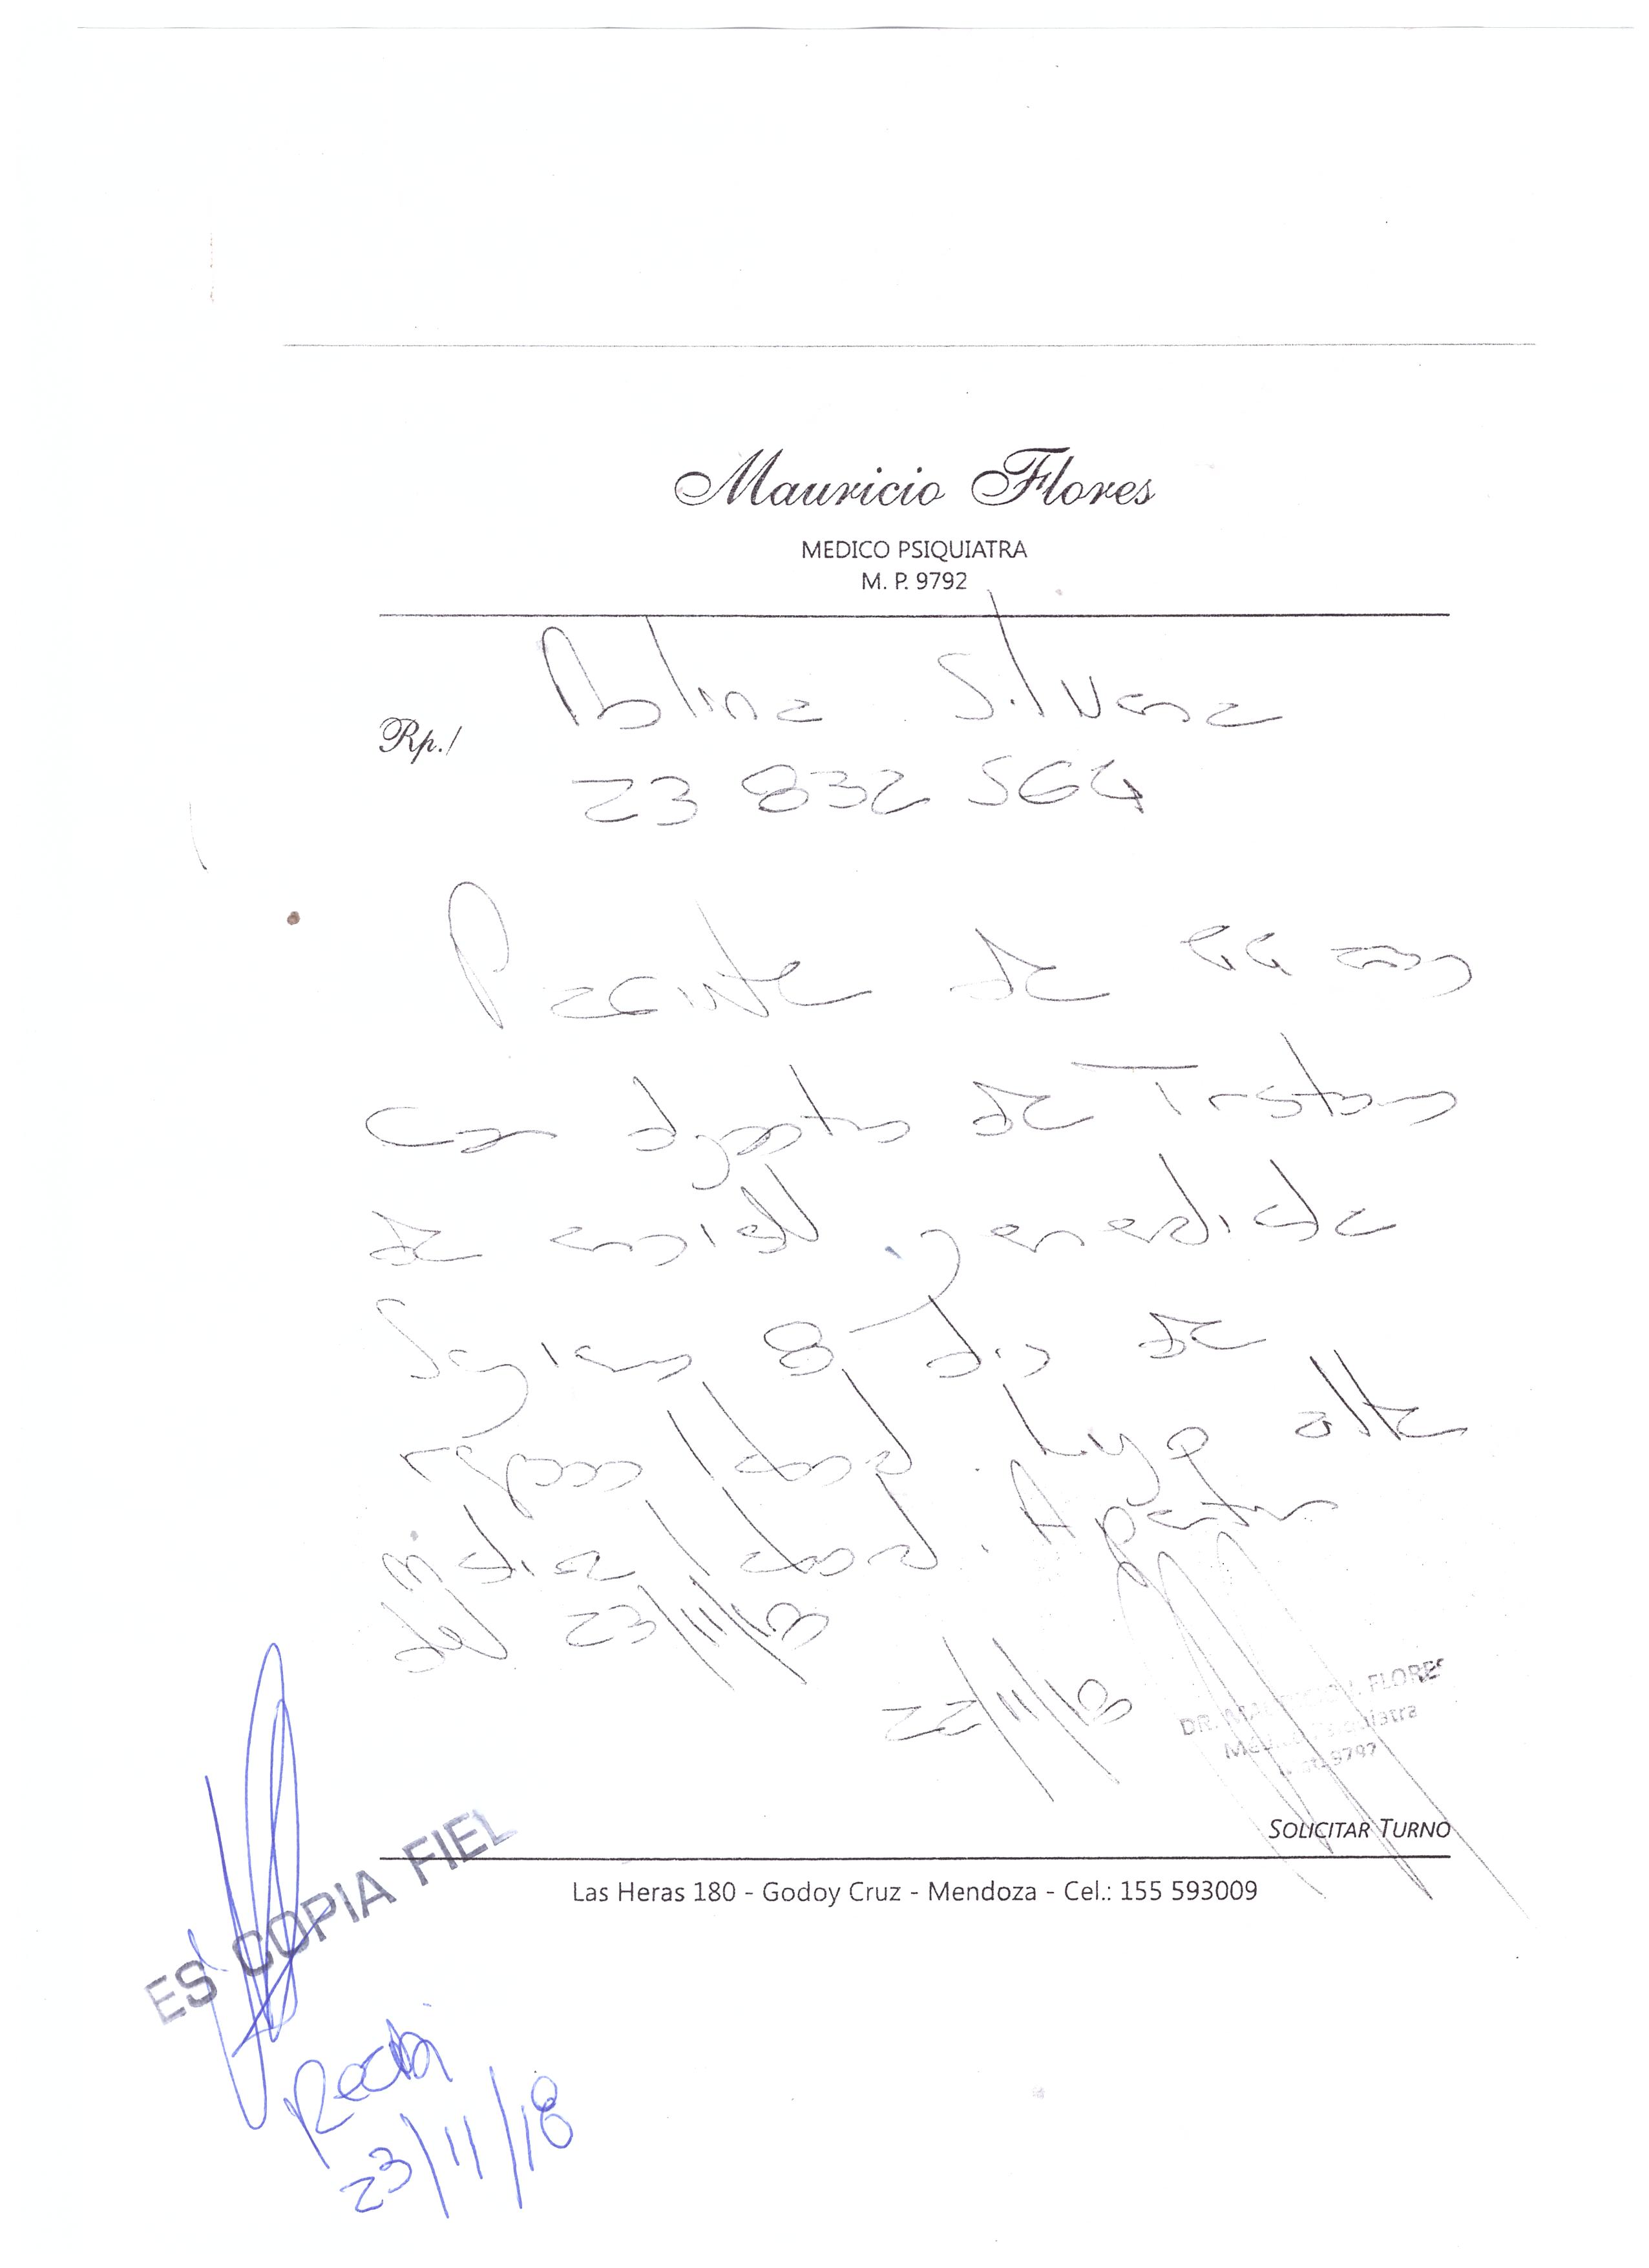 Mauricio Flores
MEDICO PSIQUIATRA
M. P. 9792
Rp./
Molina Silvana
23 832 564
Paciente de 44 años
con diagnostico de Trastorno
de ansiedad generalizada
Sugiero 8 dias de
reposo laboral. Luego alta
medica laboral. A partir
del 23/11/18
22/11/18
DR. FLORES
SOLICITAR TURNO
Las Heras 180 - Godoy Cruz - Mendoza - Cel.: 155 593009
ES COPIA FIEL
Recibi
23/11/18